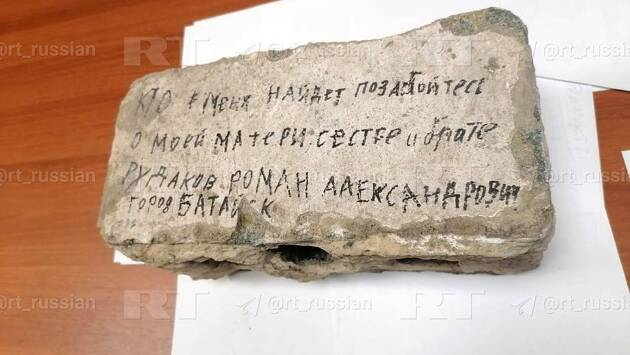 @rt_russian
RT
@rt_russian
RT
@rt_russian
КТО МЕНЯ НАЙДЕТ ПОЗАБОЙТЕСЬ
О МОЕЙ МАТЕРИ. СЕСТРЕ И брате
РУДАКОВ РОМАН АЛЕКСАНДРОВИЧ
ГОРОД БАТАЙСК
@rt_russian
@rt_russian
@rt_russian
RT
@rt_russian
RT
@rt_russian